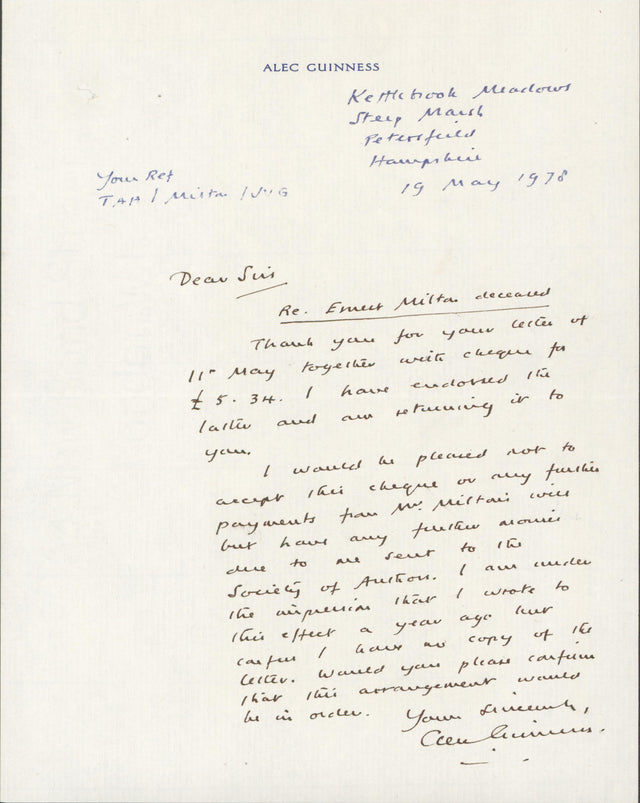 ALEC GUINNESS
Kettlebrook Meadows
Steep Marsh
Petersfield
Hampshire
19 May 1978
Your Ref
TAH / Milton / JVG
Dear Sirs
Re. Ernest Milton deceased
Thank you for your letter of
11th May together with cheque for
£5.34. I have endorsed the
latter and am returning it to
you.
I would be pleased not to
accept this cheque or any further
payments from Mr Milton's will
but have any further monies
due to me sent to the
Society of Authors. I am under
the impression that I wrote to
this effect a year ago but
confess I have no copy of the
letter. Would you please confirm
that this arrangement would
be in order.
Yours sincerely,
Alec Guinness.